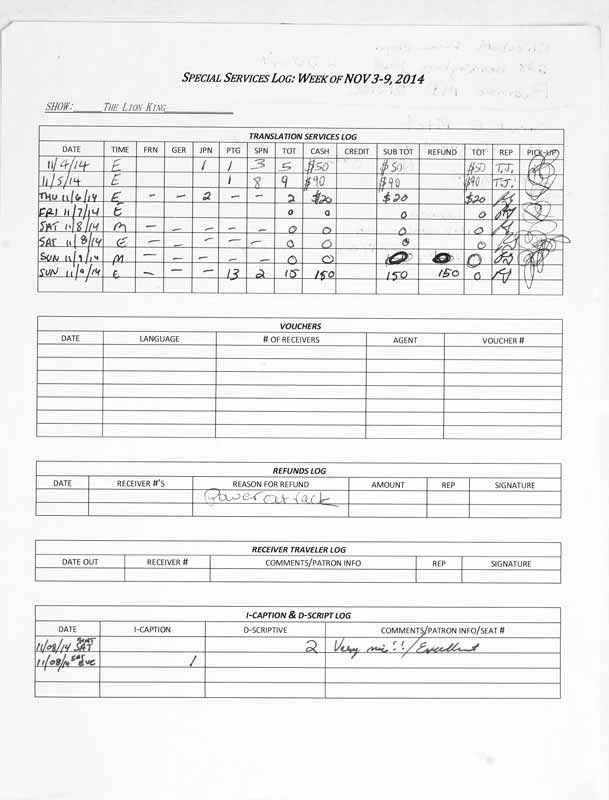 SPECIAL SERVICES LOG: WEEK OF NOV 3-9, 2014
SHOW: THE LION KING
TRANSLATION SERVICES LOG
DATE TIME FRN GER JPN PTG SPN TOT CASH CREDIT SUB TOT REFUND TOT REP PICK-UP
11/4/14 E 1 1 3 5 $50 $50 $50 T.J.
11/5/14 E 1 8 9 $90 $90 $90 T.J.
THU 11/6/14 E – – 2 – – 2 $20 $20 $20
FRI 11/7/14 E 0 0 0 0
SAT 11/8/14 M – – – – – 0 0 0 0
SAT 11/8/14 E – – – – 0 0 0 0
SUN 11/9/14 M – – – – – 0 0 0 0 0
SUN 11/9/14 E – – – 13 2 15 150 150 150 0
VOUCHERS
DATE LANGUAGE # OF RECEIVERS AGENT VOUCHER #
REFUNDS LOG
DATE RECEIVER #'S REASON FOR REFUND AMOUNT REP SIGNATURE
Power at rack
RECEIVER TRAVELER LOG
DATE OUT RECEIVER # COMMENTS/PATRON INFO REP SIGNATURE
I-CAPTION & D-SCRIPT LOG
DATE I-CAPTION D-SCRIPTIVE COMMENTS/PATRON INFO/SEAT #
11/08/14 SAT 2 Very nice!!/Excellent
11/08/14 SAT EVE 1